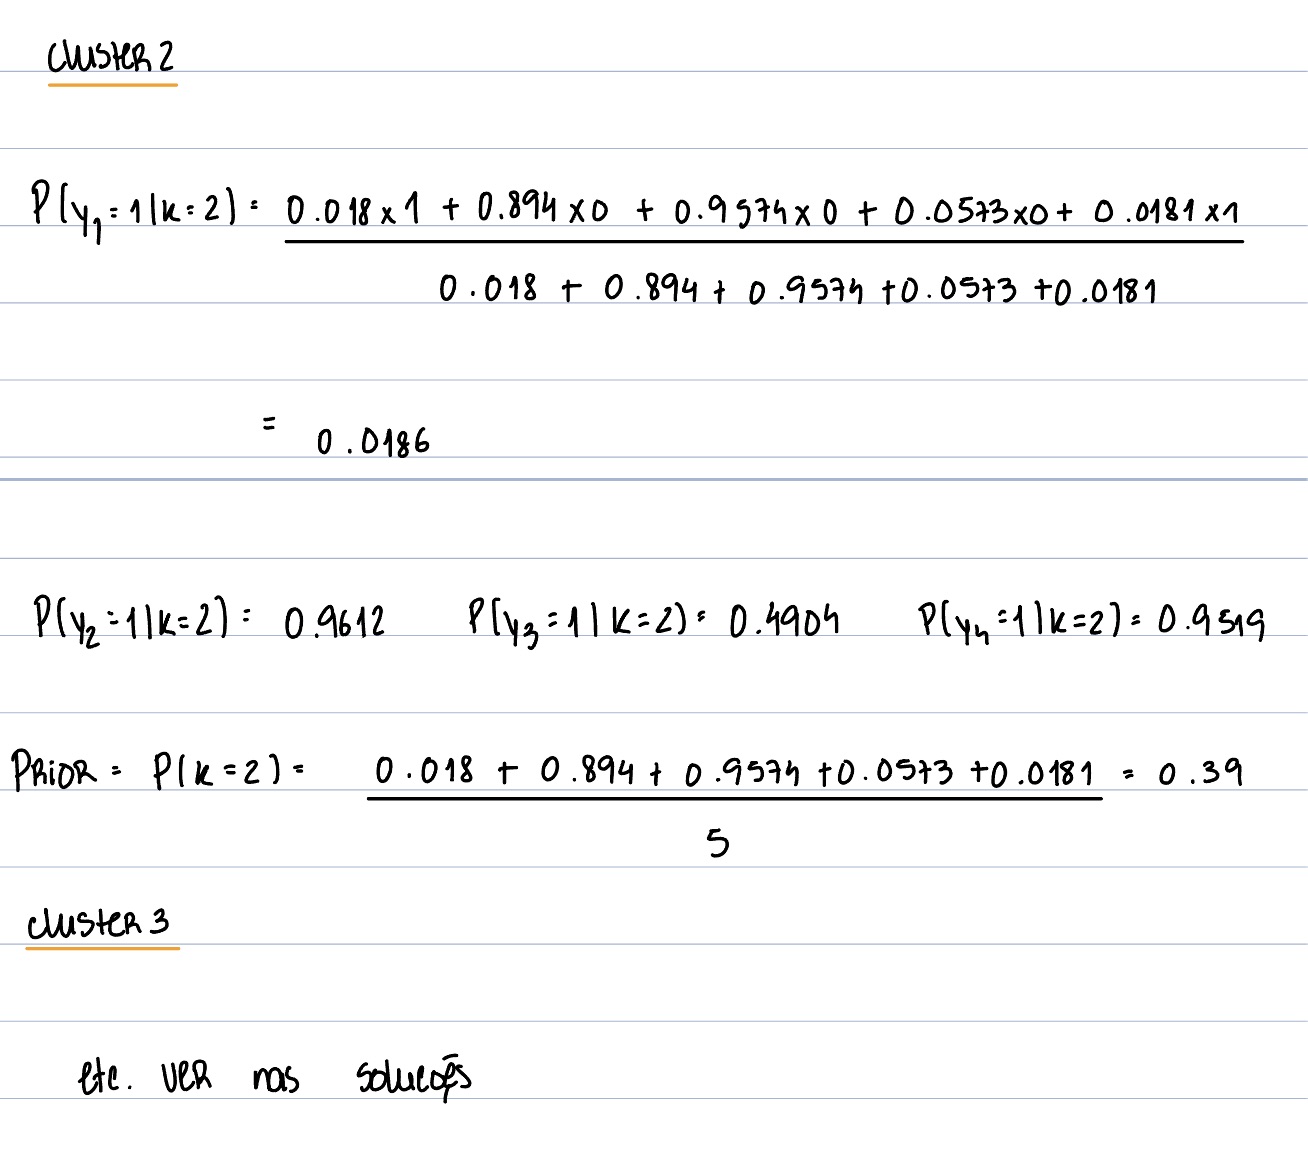 Cluster 2
P(y₁=1|k=2) = 0.018x1 + 0.894x0 + 0.9574x0 + 0.0573x0 + 0.0181x1
0.018 + 0.894 + 0.9574 +0.0573 +0.0181
= 0.0186
P(y₂=1|k=2) = 0.9612 P(y₃=1|k=2) = 0.4904 P(y₄=1|k=2) = 0.9519
PRiOR = P(k=2) = 0.018 + 0.894 + 0.9574 +0.0573 +0.0181 = 0.39
5
cluster 3
etc. VER nas soluções